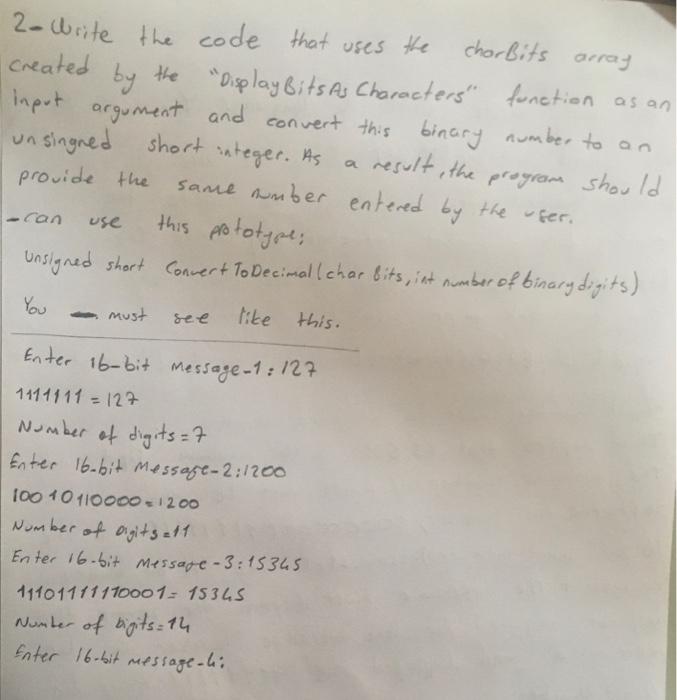 2-Write the code that uses the charBits array
created by the "DisplayBitsAs Characters" function as an
input argument and convert this binary number to an
unsingned short integer. As a result, the program should
provide the same number entered by the user.
-can use this pototype;
Unsigned short Convert To Decimal (char bits, int number of binary digits)
You must see like this.
Enter 16-bit message-1: 127
1111111 = 127
Number of digits = 7
Enter 16-bit Message-2: 1200
10010110000 = 1200
Number of Digits = 11
Enter 16-bit Message-3: 15345
11101111110001 = 15345
Number of bigits = 14
Enter 16-bit message-4: